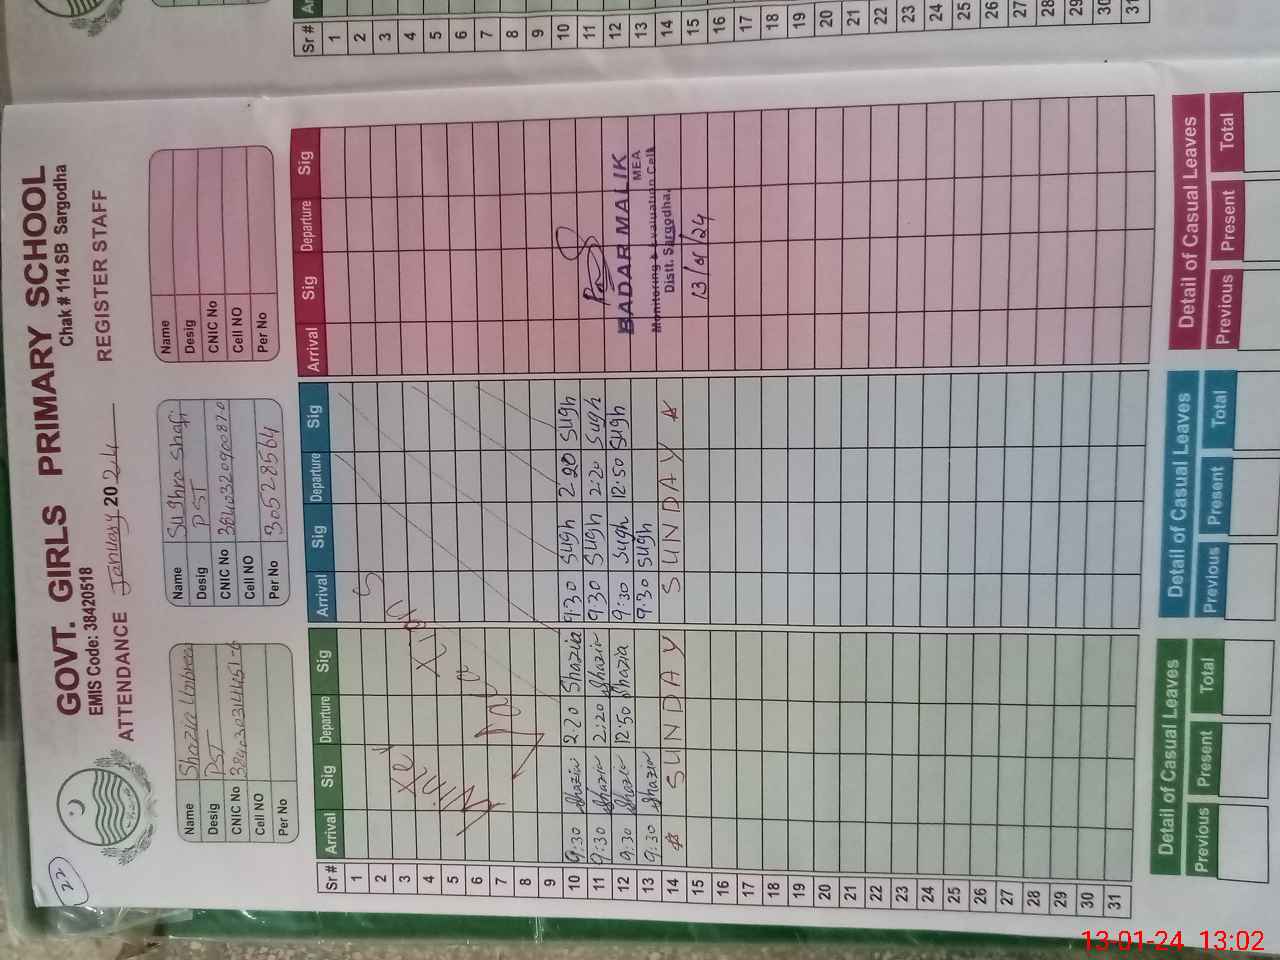 22
GOVT. GIRLS PRIMARY SCHOOL
EMIS Code: 38420518
Chak # 114 SB Sargodha
ATTENDANCE January 2024
REGISTER STAFF
Name Shazia
Desig PST
CNIC No
Cell NO
Per No
Name Sughra Shafi
Desig PST
CNIC No
Cell NO
Per No 30528564
Name
Desig
CNIC No
Cell NO
Per No
Sr # Arrival Sig Departure Sig Arrival Sig Departure Sig Arrival Sig Departure Sig
1
2
3
4
5
6
7
8
9
10 9:30 Shazia 2:20 Shazia 9:30 Sugh 2:20 Sugh
11 9:30 Shazia 2:20 Shazia 9:30 Sugh 2:20 Sugh
12 9:30 Shazia 12:50 Shazia 9:30 Sugh 12:50 Sugh
13 9:30 Shazia 9:30 Sugh
14 SUNDAY SUNDAY
15
16
17
18
19
20
21
22
23
24
25
26
27
28
29
30
31
BADAR MALIK
MEA
Monitoring & Evaluation Cell
Distt. Sargodha.
13/01/24
Detail of Casual Leaves Detail of Casual Leaves Detail of Casual Leaves
Previous Present Total Previous Present Total Previous Present Total
Sr #
1
2
3
4
5
6
7
8
9
10
11
12
13
14
15
16
17
18
19
20
21
22
23
24
25
26
27
28
29
30
31
13-01-24 13:02